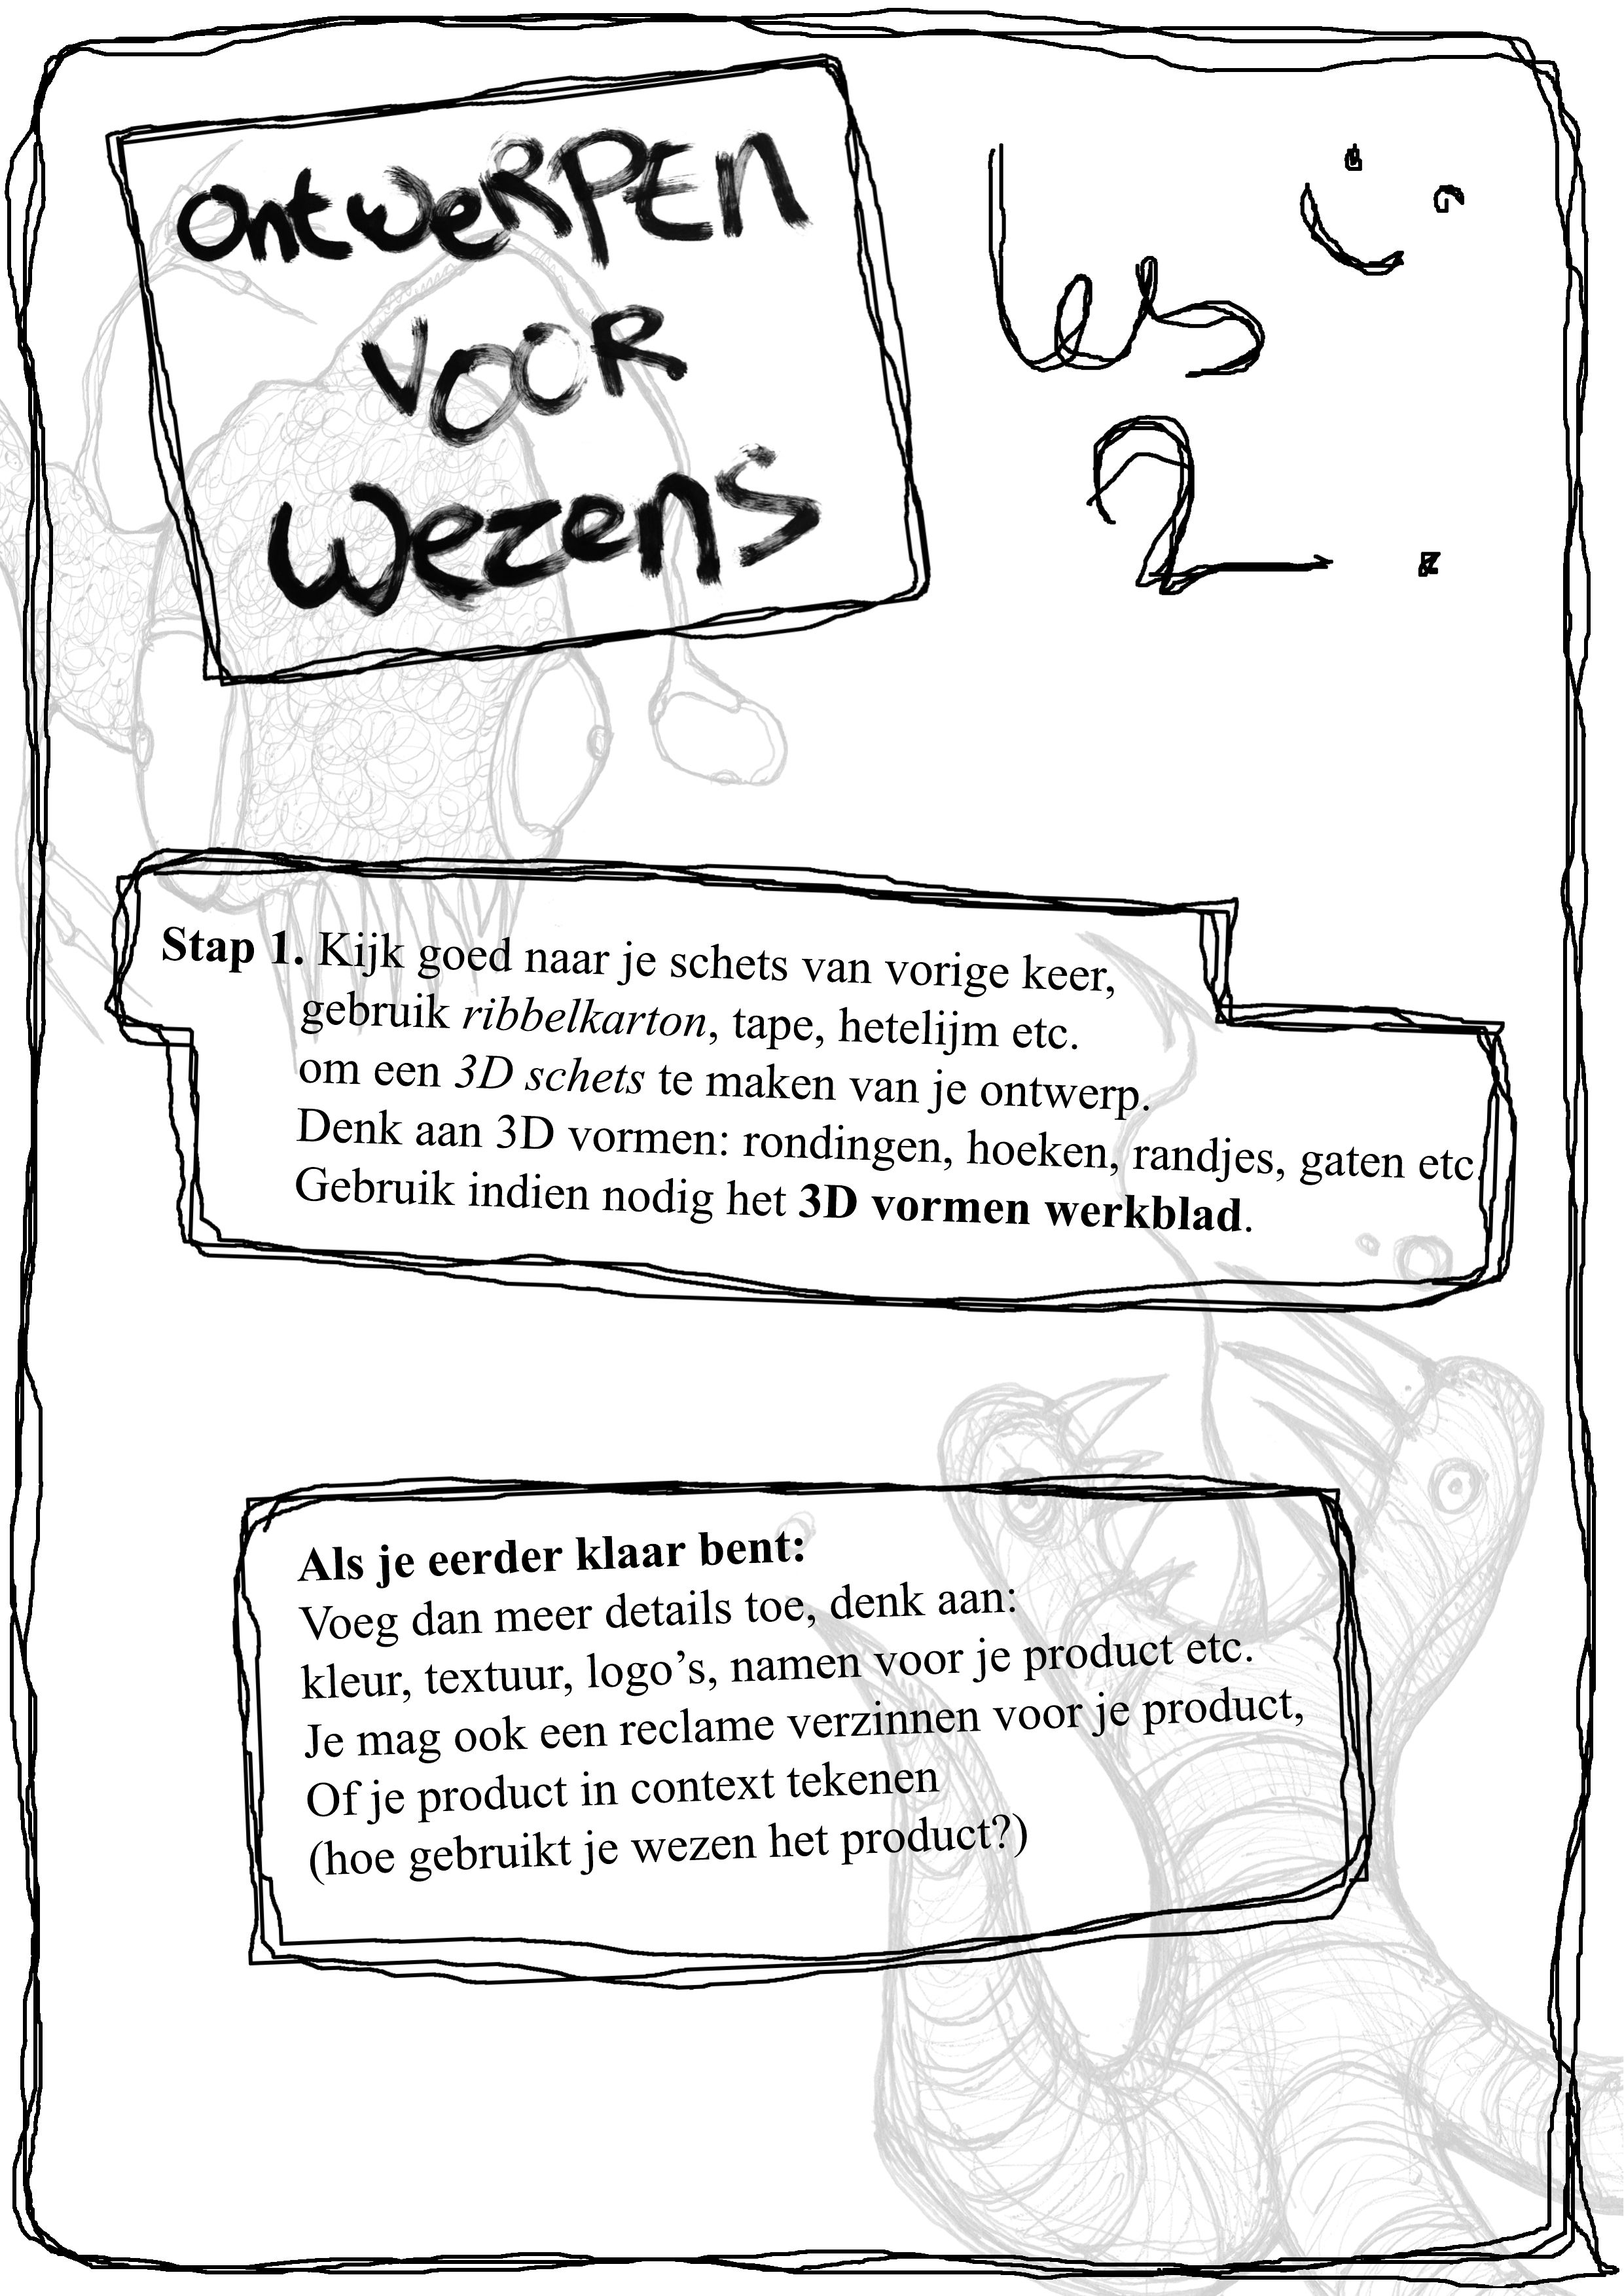 ontweRPEn
VOOR
wezens
Les
2
Stap 1. Kijk goed naar je schets van vorige keer,
gebruik ribbelkarton, tape, hetelijm etc.
om een 3D schets te maken van je ontwerp.
Denk aan 3D vormen: rondingen, hoeken, randjes, gaten etc.
Gebruik indien nodig het 3D vormen werkblad.
Als je eerder klaar bent:
Voeg dan meer details toe, denk aan:
kleur, textuur, logo’s, namen voor je product etc.
Je mag ook een reclame verzinnen voor je product,
Of je product in context tekenen
(hoe gebruikt je wezen het product?)